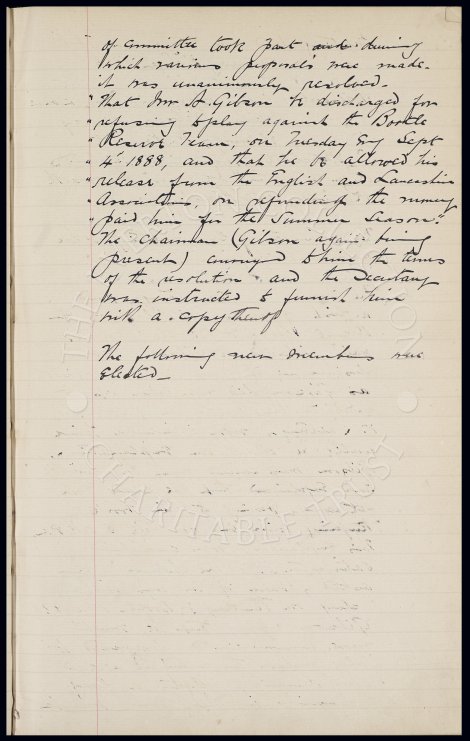 of committee took part and during
which various proposals were made.
it was unanimously resolved.
"That Mr A. Gibson be discharged for
"refusing to play against the Bootle
"Reserve Team, on Tuesday Evg Sept
"4th 1888, and that he be allowed his
"release from the English and Lancashire
"Association, on refunding the money
"paid him for the Summer Season."
The Chairman (Gibson again being
present) conveyed to him the terms
of the resolution and the Secretary
was instructed to furnish him
with a copy thereof
The following new members were
Elected—
CHARITABLE TRUST